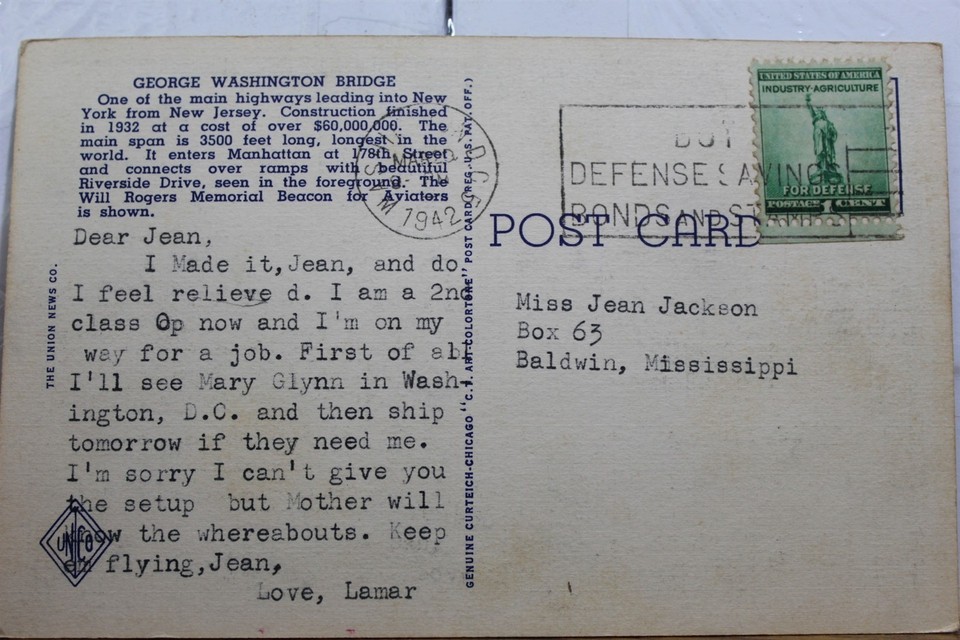 GEORGE WASHINGTON BRIDGE
One of the main highways leading into New
York from New Jersey. Construction finished
in 1932 at a cost of over $60,000,000. The
main span is 3500 feet long, longest in the
world. It enters Manhattan at 178th Street
and connects over ramps with beautiful
Riverside Drive, seen in the foreground. The
Will Rogers Memorial Beacon for Aviators
is shown.
Dear Jean,
I Made it,Jean, and do
I feel relieve d. I am a 2nd
class Op now and I'm on my
way for a job. First of all
I'll see Mary Glynn in Wash-
ington, D.C. and then ship
tomorrow if they need me.
I'm sorry I can't give you
the setup but Mother will
know the whereabouts. Keep
em flying,Jean,
Love, Lamar
THE UNION NEWS CO.
UNCO
GENUINE CURTEICH-CHICAGO "C.T. ART-COLORTONE" POST CARD (REG. U.S. PAT. OFF.)
MAR
1942
BUY
DEFENSE SAVINGS
BONDS AND STAMPS
UNITED STATES OF AMERICA
INDUSTRY·AGRICULTURE
FOR DEFENSE
POSTAGE 1 CENT
POST CARD
Miss Jean Jackson
Box 63
Baldwin, Mississippi